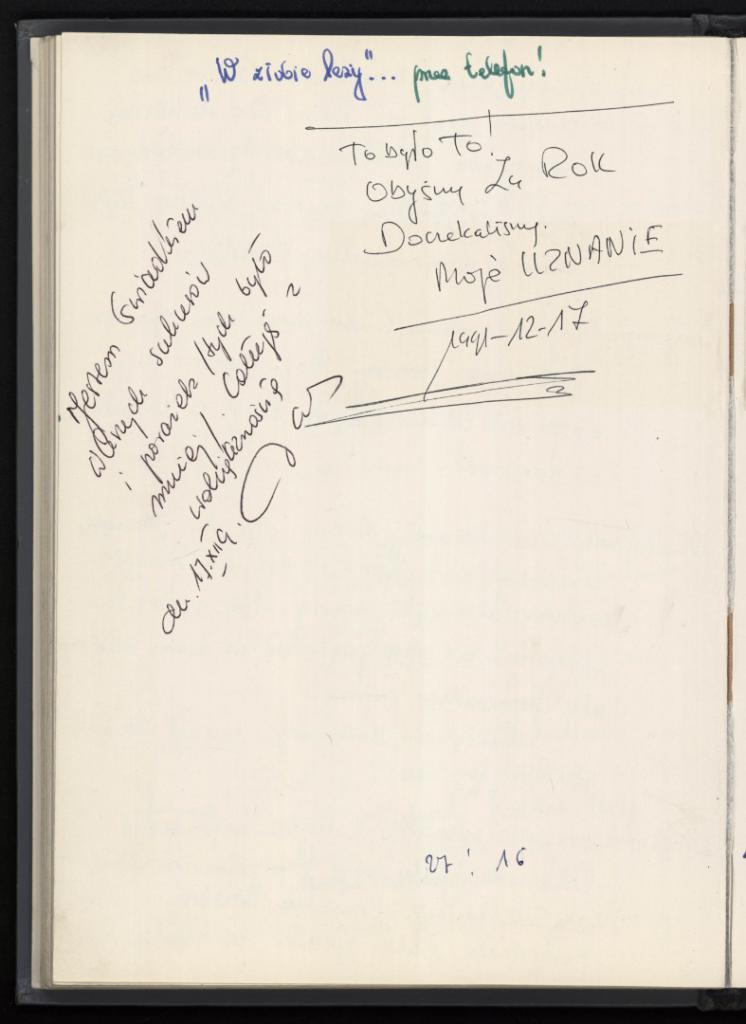 „W złobie leży"... przez telefon!
To było To!
Obyśmy Za ROK
Doczekaliśmy.
Moje UZNANIE
1991-12-17
Jestem świadkiem
Waszych sukcesów
i porażek /tych było
mniej/. Całuję z
wdzięcznością
dn. 17.XII 9
27! 16